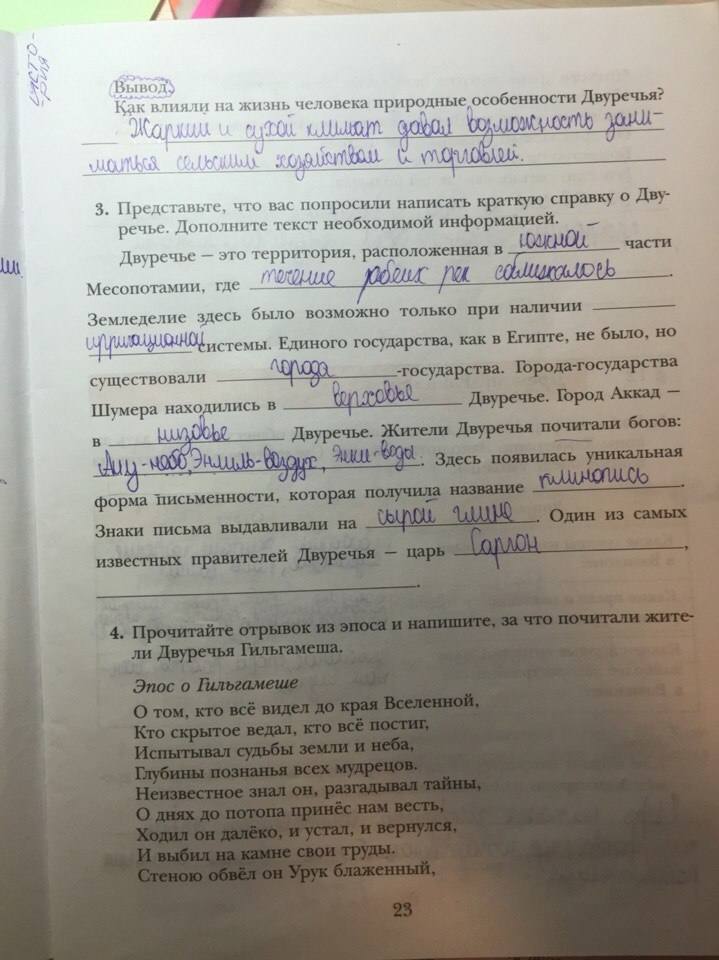 исто-
рия
Вывод.
Как влияли на жизнь человека природные особенности Двуречья?
Жаркий и сухой климат давал возможность зани-
маться сельским хозяйством и торговлей.
3. Представьте, что вас попросили написать краткую справку о Дву-
речье. Дополните текст необходимой информацией.
Двуречье – это территория, расположенная в южной части
Месопотамии, где течение обеих рек сближалось.
Земледелие здесь было возможно только при наличии
ирригационной системы. Единого государства, как в Египте, не было, но
существовали города-государства. Города-государства
Шумера находились в верховье Двуречье. Город Аккад –
в низовье Двуречье. Жители Двуречья почитали богов:
Ану-небо, Энлиль-воздух, Энки-воды. Здесь появилась уникальная
форма письменности, которая получила название клинопись.
Знаки письма выдавливали на сырой глине. Один из самых
известных правителей Двуречья – царь Саргон,
.
4. Прочитайте отрывок из эпоса и напишите, за что почитали жите-
ли Двуречья Гильгамеша.
Эпос о Гильгамеше
О том, кто всё видел до края Вселенной,
Кто скрытое ведал, кто всё постиг,
Испытывал судьбы земли и неба,
Глубины познанья всех мудрецов.
Неизвестное знал он, разгадывал тайны,
О днях до потопа принёс нам весть,
Ходил он далёко, и устал, и вернулся,
И выбил на камне свои труды.
Стеною обвёл он Урук блаженный,
23